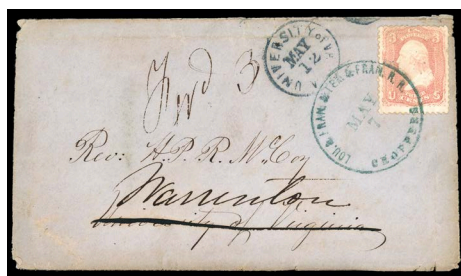 UNIVERSITY of VA
MAY
12
LOU. & FRAM. & LEX. & FRAM. R.R.
MAY
7
CROPPERS
Fwd 3
3 3
Rev: H. P. R. McCoy
Warrenton
University of Virginia